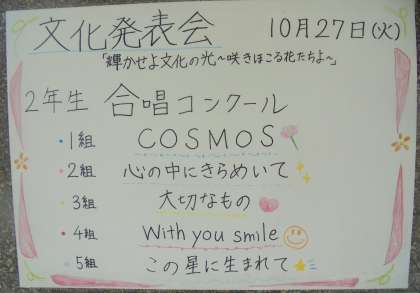 文化発表会 10月27日(火)
「輝かせよ文化の光~咲きほこる花たちよ~」
2年生 合唱コンクール
・1組 COSMOS
・2組 心の中にきらめいて
・3組 大切なもの
・4組 With you smile
・5組 この星に生まれて